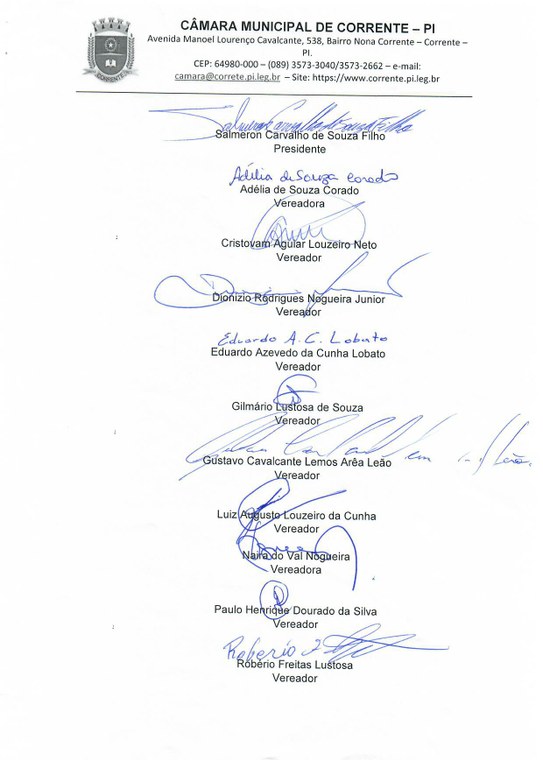 CÂMARA MUNICIPAL DE CORRENTE – PI
Avenida Manoel Lourenço Cavalcante, 538, Bairro Nona Corrente – Corrente –
PI.
CEP: 64980-000 – (089) 3573-3040/3573-2662 – e-mail:
camara@correte.pi.leg.br – Site: https://www.corrente.pi.leg.br
CORRENTE
Salmeron Carvalho de Souza Filho
Salmeron Carvalho de Souza Filho
Presidente
Adélia de Souza Corado
Adélia de Souza Corado
Vereadora
Cristovam Aguiar Louzeiro Neto
Vereador
Dionizio Rodrigues Nogueira Junior
Vereador
Eduardo A. C. Lobato
Eduardo Azevedo da Cunha Lobato
Vereador
Gilmário Lustosa de Souza
Vereador
Gustavo Cavalcante Lemos Arêa Leão
Vereador
Luiz Augusto Louzeiro da Cunha
Vereador
Naira do Val Nogueira
Vereadora
Paulo Henrique Dourado da Silva
Vereador
Roberio
Robério Freitas Lustosa
Vereador